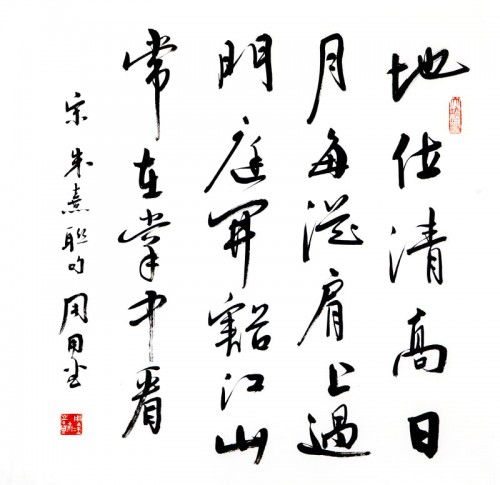 地位清高日
月每從肩上過
門庭開豁江山
常在掌中看
宋朱熹聯句周